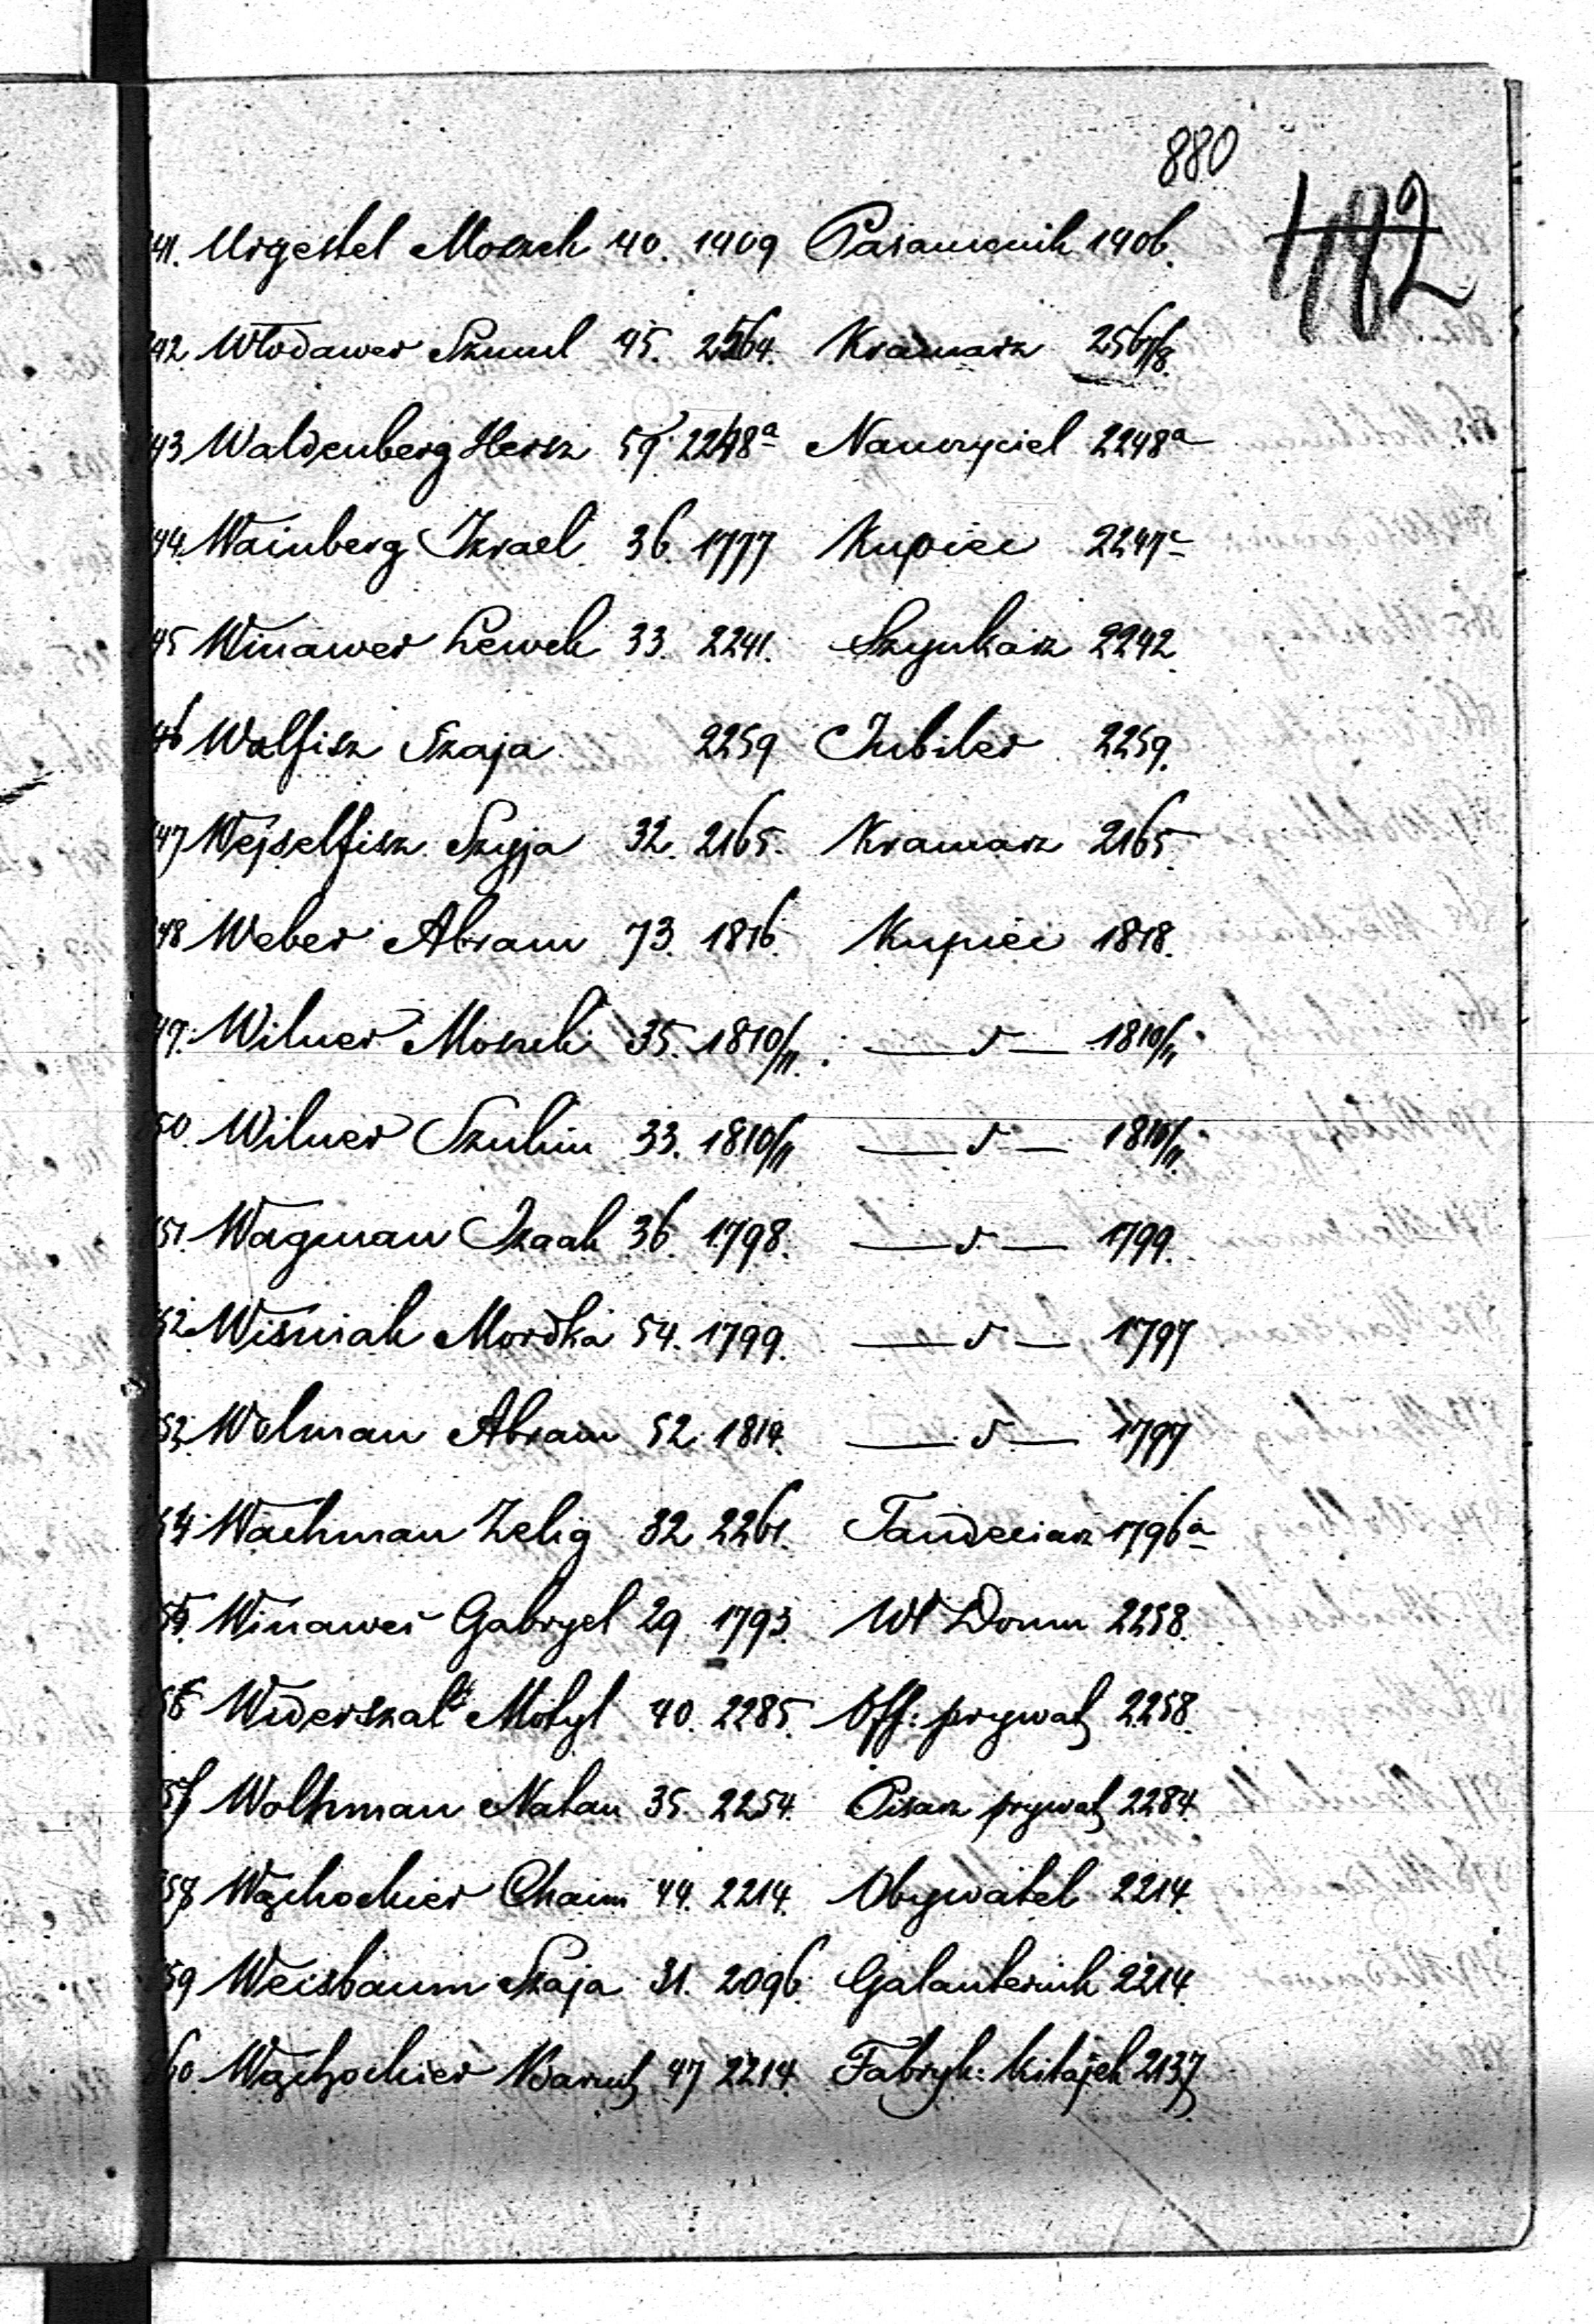 880
482
41. Urgestel Moszek 40. 1409 Pasamonik 1406.
42 Włodawer Szmul 45. 2564. Kramarz 2567/8.
43 Waldenberg Hersz 59. 2248a Nauczyciel 2248a
44. Wainberg Izrael 36. 1777 Kupiec 2247c
45 Winawer Lewek 33. 2241. Szynkarz 2242
46 Walfisz Szaja 2259 Jubiler 2259.
47 Wejselfisz Szyja 32. 2165. Kramarz 2165
48 Weber Abram 73. 1816 Kupiec 1818.
49. Wilner Moszek 35. 1810/11. —d— 1810/11
50. Wilner Szulim 33. 1810/11 —d— 1810/11.
51. Wagman Izaak 36. 1798. —d— 1799.
52. Wiśniak Mordka 54. 1799. —d— 1797
53. Wolman Abram 52. 1814. —d— 1797
54. Wachman Zelig 32 2261. Tandeciarz 1796a
55. Winawer Gabryel 29 1793. Wł Domu 2258.
56 Widerszal Motyl 40. 2285. Off: prywat 2258.
57 Wolkman Natan 35. 2254. Pisarz prywat 2284.
58 Wąchocker Chaim 44. 2214. Obywatel 2214.
59 Weisbaum Szaja 31. 2096. Galanternik 2214.
60. Wąchocker Baruch 47 2214. Fabryk: Kitajek 2137